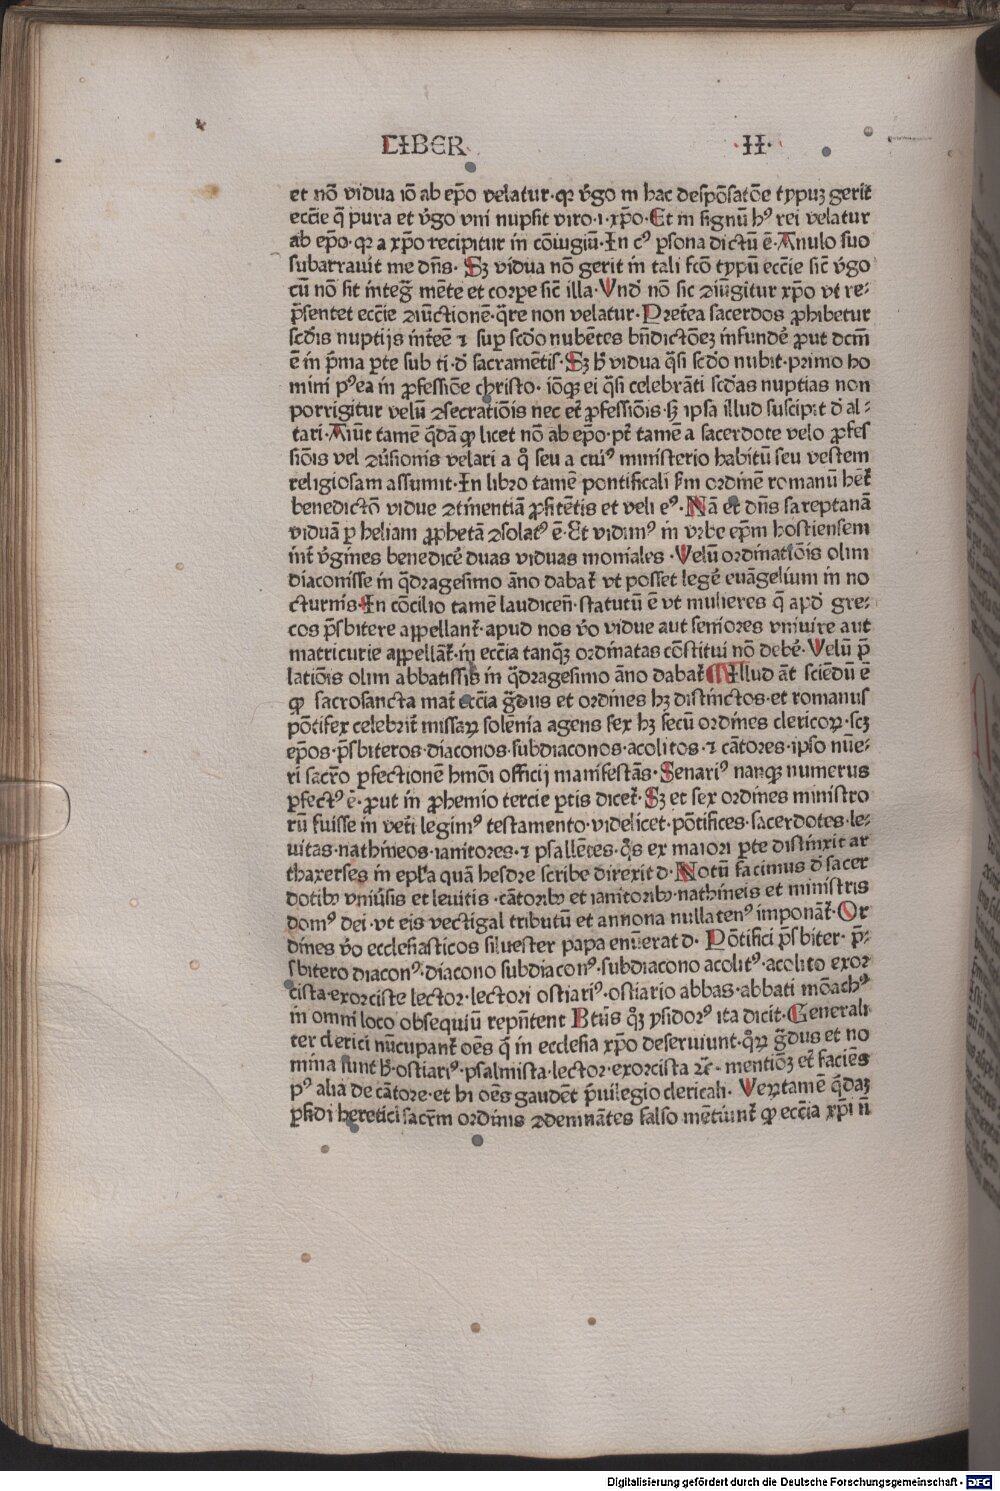 LIBER ·II·
et nō vidua iō ab ep̄o velatur·qꝛ v̄go in hac despōsatōe typuꝫ gerit̄
ecc̄ie q̄ pura et v̄go vni nupsit viro·i·xp̄o·Et in signū hꝰ rei velatur
ab ep̄o·qꝛ a xp̄o recipitur in cōiugiū·In cꝰ ꝑsona dictū ē·Anulo suo
subarrauit me dn̄s· Sꝫ vidua nō gerit in tali fc̄o typū ecc̄ie sic̄ v̄go
cū nō sit inteḡ mēte et corꝑe sic̄ illa·Vnd̄ nō sic ꝯiūgitur xp̄o vt re⸗
p̄sentet ecc̄ie ꝯiūctionē·q̄re non velatur·Pret̄ea sacerdos ꝓhibetur
sc̄dis nuptijs int̄eē ⁊ suꝑ sc̄do nubētes bn̄dictōeꝫ infundē ꝓut dc̄m
ē in p̄ma ꝑte sub ti·d̄ sacramētis·Sꝫ h̄ vidua q̄si sc̄do nubit·primo ho
mini pꝰea in ꝓfessiōe christo· iōqꝫ ei q̄si celebrāti sc̄das nuptias non
porrigitur velū ꝯsecratiōis nec et̄ ꝓfessiōis·sꝫ ipsa illud suscipit d̄ al⸗
tari·Aiūt tamē q̄dā ꝙ licet nō ab ep̄o·pt̄ tamē a sacerdote velo ꝓfes
siōis vel ꝯūsionis velari a q̊ seu a cuiꝰ ministerio habitū seu vestem
religiosam assumit·In libro tamē pontificali s̄m ordinē romanū hēt̄
benedictō vidue ꝯtinentiā ꝓfitētis et veli eꝰ·Nā et dn̄s sareptanā
viduā ꝑ heliam ꝓphetā ꝯsolatꝰ ē·Et vidimꝰ in vrbe ep̄m hostiensem
int̄ v̄gines benedicē duas viduas moniales ·Velū ordinatiōis olim
diaconisse in q̄dragesimo āno dabat̄ vt posset legē euāgelium in no
cturnis·In cōcilio tamē laudiceñ·statutū ē vt mulieres q̄ apd̄ gre⸗
cos p̄sbitere appellant̄·apud nos v̄o vidue aut seniores vniuire aut
matricurie appellāt̄·in ecc̄ia tanqꝫ ordinatas cōstitui nō debē·Velū p̄
latiōis olim abbatissis in q̄dragesimo āno dabat̄ Illud āt sciēdū ē
ꝙ sacrosancta mat̄ ecc̄ia ḡdus et ordines hꝫ distinctos·et romanus
pōtifex celebrit̄ missaꝝ solēnia agens sex hꝫ secū ordines clericoꝝ·scꝫ
ep̄os·p̄sbiteros·diaconos·subdiaconos·acolitos·⁊ cātores·ipso nūe⸗
ri sacr̄o ꝑfectionē hm̄oi officij manifestās·Senariꝰ nanqꝫ numerus
ꝑfectꝰ ē·ꝓut in ꝓhemio tercie ꝑtis dicet̄·Sꝫ et sex ordines ministro
rū fuisse in vet̄i legimꝰ testamento·videlicet·pōtifices·sacerdotes·le⸗
uitas·nathineos·ianitores·⁊ psallētes·q̄s ex maiori ꝑte distinxit ar
thaxerses in epl̄a quā hesdre scribe direxit d·Notū facimus d̄ sacer
dotibꝫ vniūsis et leuitis ·cātoribꝫ et ianitoribꝫ·nathineis et ministris
domꝰ dei·vt eis vectigal tributū et annona nullatenꝰ imponāt̄·Or
dines v̄o ecclesiasticos siluester papa enūerat d· Pōtifici p̄sbiter· p̄⸗
sbitero diaconꝰ·diacono subdiaconꝰ·subdiacono acolitꝰ·acolito exor
cista·exorciste lector·lectori ostiariꝰ·ostiario abbas·abbati mōachꝰ
in omni loco obsequiū repn̄tent Btūs qꝫ ysidorꝰ ita dicit·Generali
ter clerici nūcupant̄ oēs q̄ in ecclesia xp̄o deseruiunt·qꝝ ḡdus et no
mina sunt h̄·ostiariꝰ·psalmista·lector·exorcista ⁊c̄· mentiōꝫ et̄ faciēs
pꝰ alia de cātore·et hi oēs gaudēt p̄uilegio clericali· Veꝝtamē q̄daꝫ
ꝑfidi heretici sacr̄m ordinis ꝯdemnātes falso mētiunt̄ ꝙ ecc̄ia xp̄i n̄
Digitalisierung gefördert durch die Deutsche Forschungsgemeinschaft - DFG